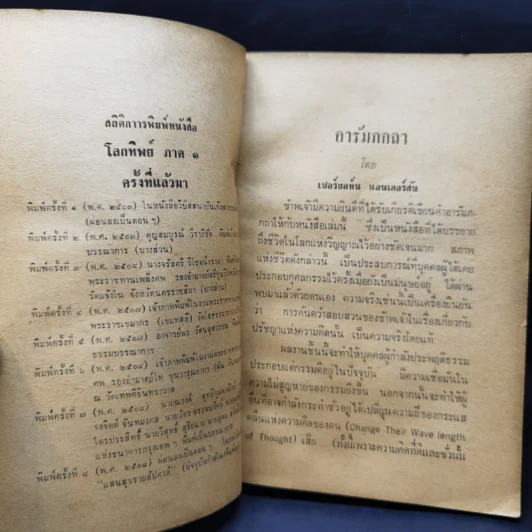 สถิติการพิมพ์หนังสือ
โลกทิพย์ ภาค ๑
ครั้งที่แล้วมา
พิมพ์ครั้งที่ ๑ (พ.ศ. ๒๕๐๓) ในหนังสือวิปัสสนาบันเทิงสาร
(ผ่อนลงเป็นตอน ๆ)
พิมพ์ครั้งที่ ๒ (พ.ศ. ๒๕๐๓) คุณสมบูรณ์
บรรณาการ (บางส่วน)
พิมพ์ครั้งที่ ๓ (พ.ศ. ๒๕๐๔) นางจรัสศรี
พระราชทานเพลิงศพ
วัดแจ้งใน จังหวัดนครราชสีมา (บางส่วน)
พิมพ์ครั้งที่ ๔ (พ.ศ. ๒๕๐๗) เจ้าภาพพิมพ์ในงานพระราชทาน
พระราชเขมากร (เขมทตฺติ)
พิมพ์ครั้งที่ ๕ (พ.ศ. ๒๕๐๗) อาจารย์พร รัตนสุวรรณ
ธรรมบรรณาการ
พิมพ์ครั้งที่ ๖ (พ.ศ. ๒๕๐๗) เจ้าภาพพิมพ์ในงาน
ศพ รองอำมาตย์โท ขุน
ณ วัดเทพศิรินทราวาส
พิมพ์ครั้งที่ ๗ (พ.ศ. ๒๕๐๘) นายณรงค์
จันทมงคล
ไตรประสิทธิ์ นายวิสุทธิ์ สุริยผล
แห่งธนาคารกรุงเทพ ฯ พิมพ์เป็นบรรณาการ
พิมพ์ครั้งที่ ๘ (พ.ศ. ๒๕๐๘) ผ่อนลงเป็นตอน ๆ
"แสนสุขรายสัปดาห์"
อารัมภกถา
โดย
เปอร์ยอห์น แอนเดอร์สัน
ข้าพเจ้ามีความยินดีที่ได้รับเกียรติเขียนคำอารัมภ-
กถาให้กับหนังสือเล่มนี้ ซึ่งเป็นหนังสือที่ได้บรรยาย
ถึงชีวิตในโลกแห่งวิญญาณไว้อย่างชัดเจนมาก สภาพ
แห่งชีวิตดังกล่าวนี้ เป็นประสบการณ์ที่บุคคลผู้ได้เคย
ประกอบกุศลกรรมไว้ครั้งเมื่อยังเป็นมนุษย์อยู่ ได้ผ่าน
พบมาแล้วด้วยตนเอง ความจริงเช่นนี้เป็นเครื่องยืนยัน
ว่า การค้นคว้าสอบสวนของข้าพเจ้าในเรื่องเกี่ยวกับ
ปรัชญาแห่งความคิดนั้น เป็นความจริงโดยแท้
ผลงานชิ้นนี้จะทำให้บุคคลผู้กำลังประพฤติธรรม
ประกอบแต่กรรมดีอยู่ในปัจจุบัน มีความเชื่อมั่นใน
ความไม่สูญหายของกรรมยิ่งขึ้น นอกจากนั้นจะทำให้ผู้
อื่นที่อาจกำลังกระทำชั่วอยู่ได้เปลี่ยนความถี่ของกระแส
คลื่นแห่งความคิดของตน (Change Their Wave length
of Thought) เสีย (ทั้งนี้เพราะความคิดที่ดีและชั่วนั้น